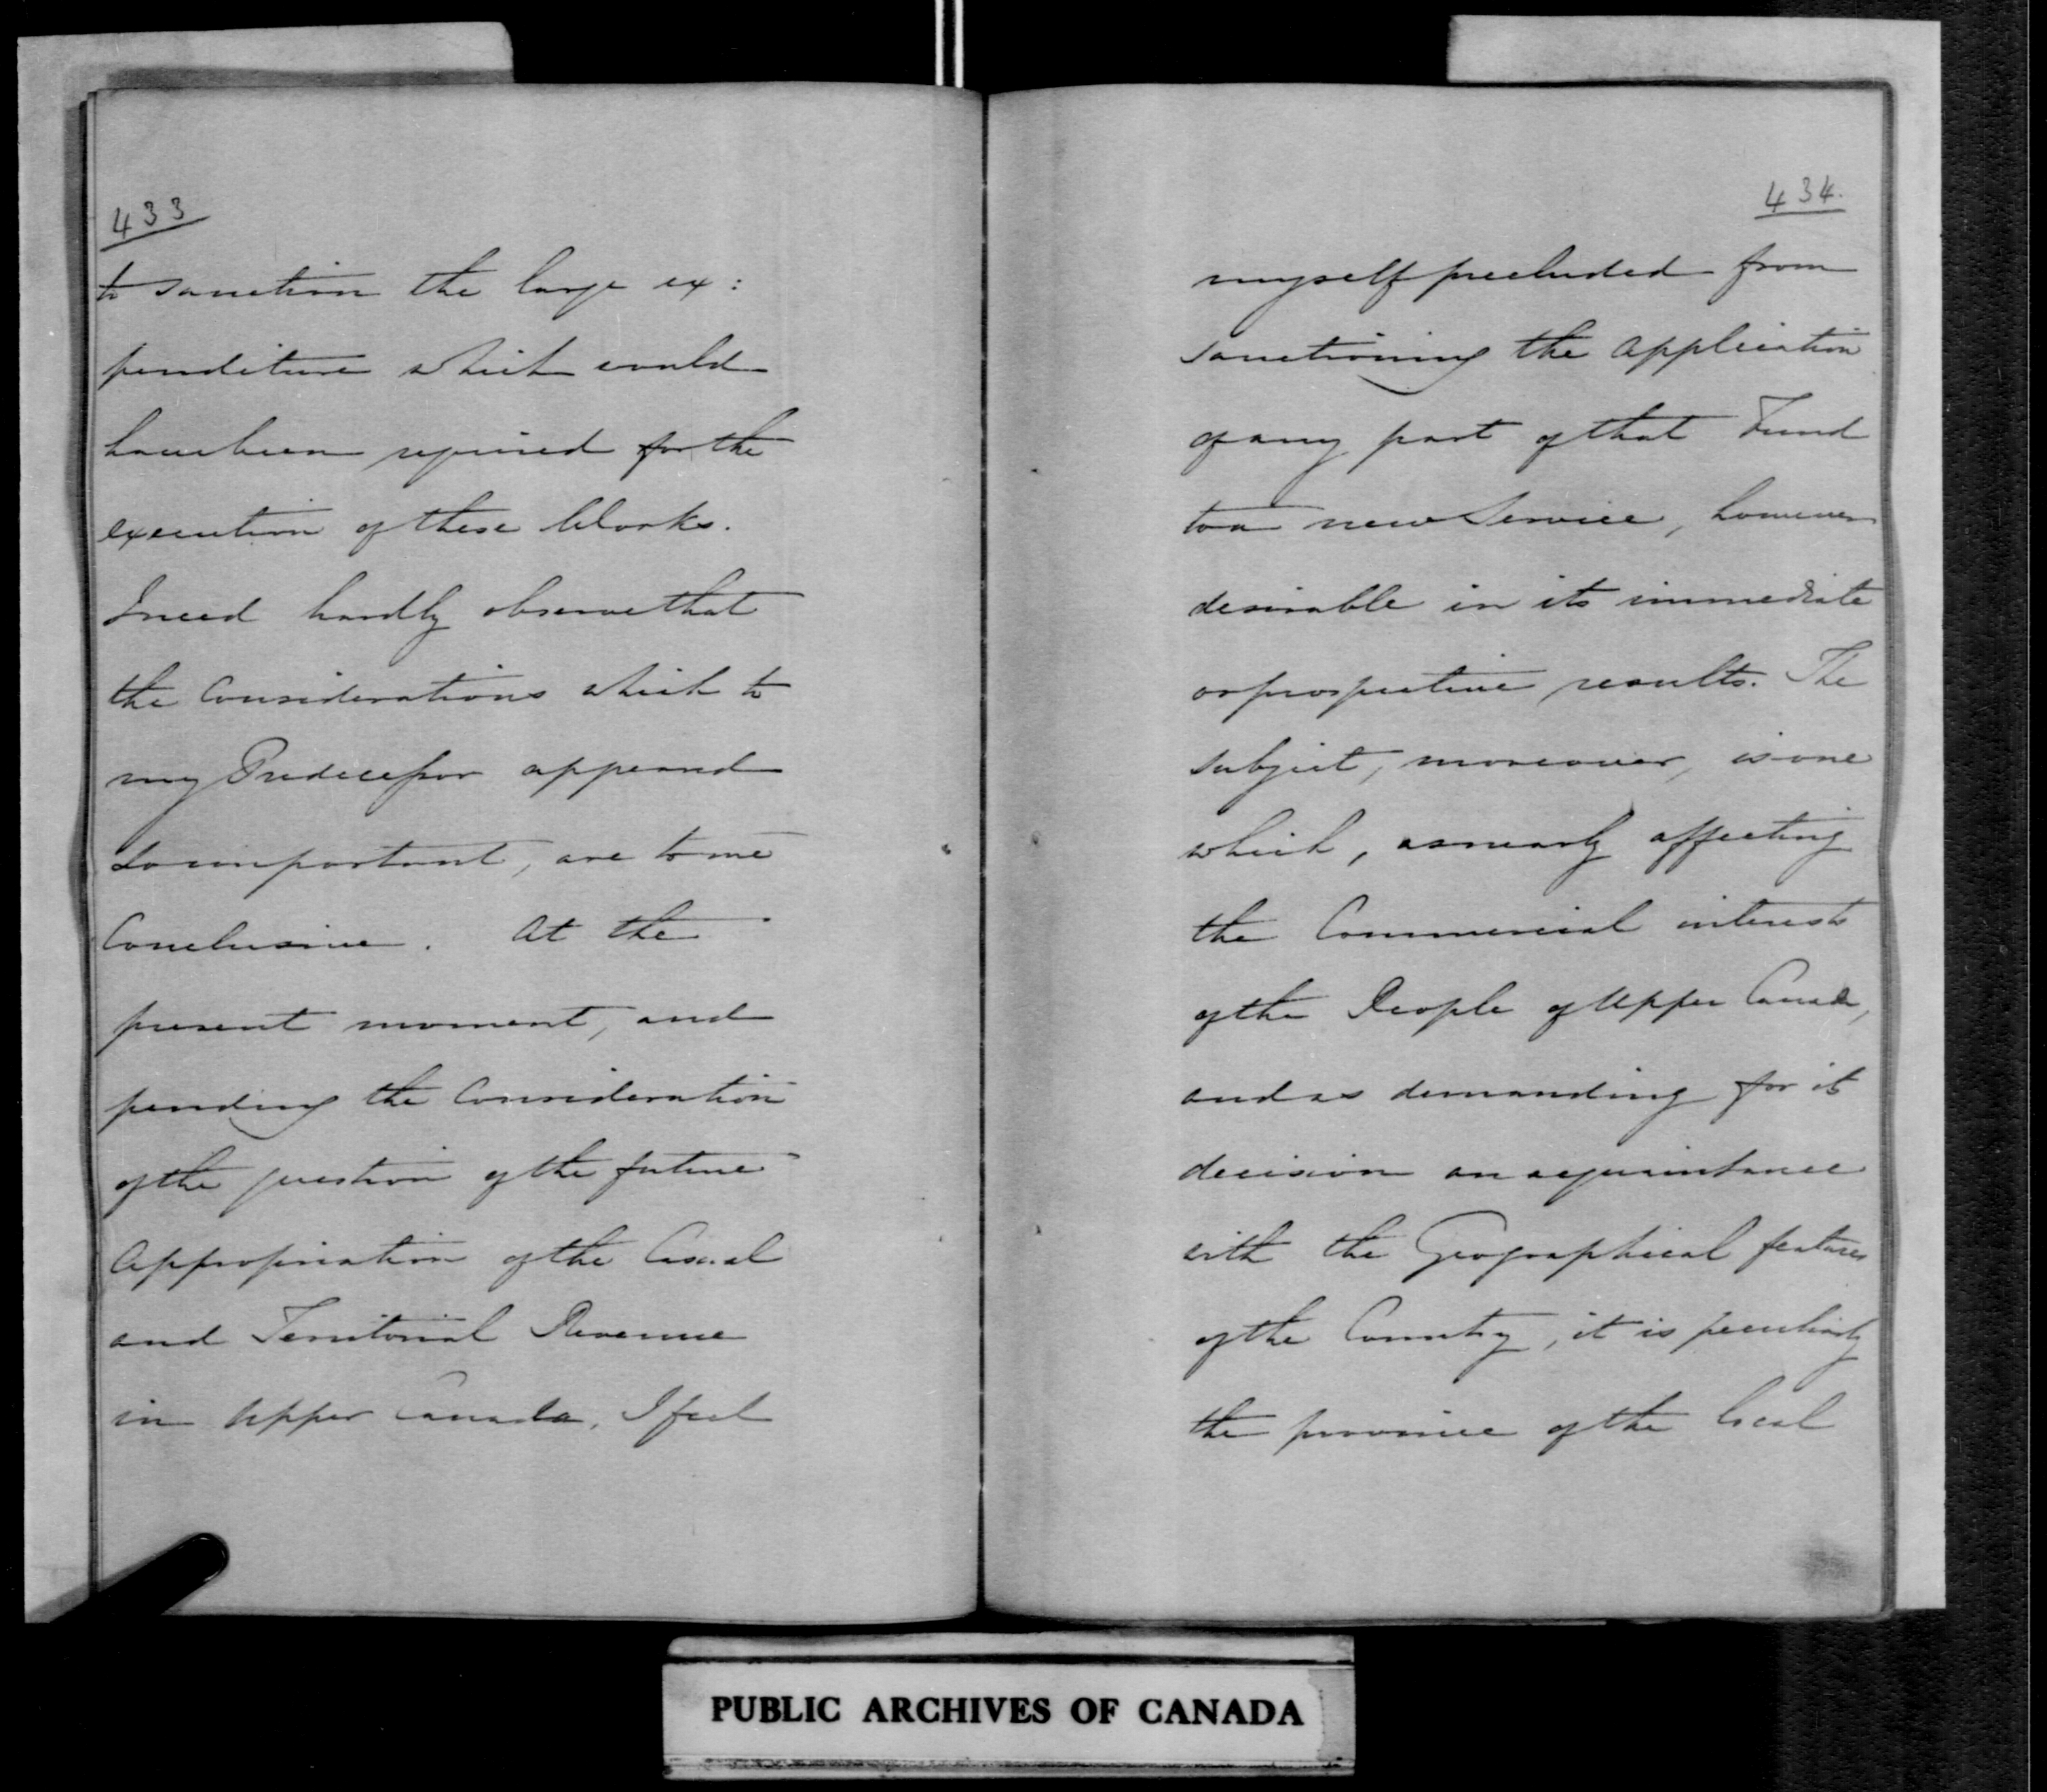 433
to sanction the large ex:
penditure which would
have been required for the
execution of these Works.
I need hardly observe that
the Considerations which to
my Predecessor appeared
so important, are to me
Conclusive. At the
present moment, and
pending the Consideration
of the question of the future
Appropriation of the Casual
and Territorial Revenue
in Upper Canada, I feel
434.
myself precluded from
sanctioning the application
of any part of that Fund
to a new Service, however
desirable in its immediate
or prospective results. The
subject, moreover, is one
which, as nearly affecting
the Commercial interests
of the People of Upper Canada,
and as demanding for its
decision an acquaintance
with the Geographical features
of the Country, it is peculiarly
the province of the local
PUBLIC ARCHIVES OF CANADA